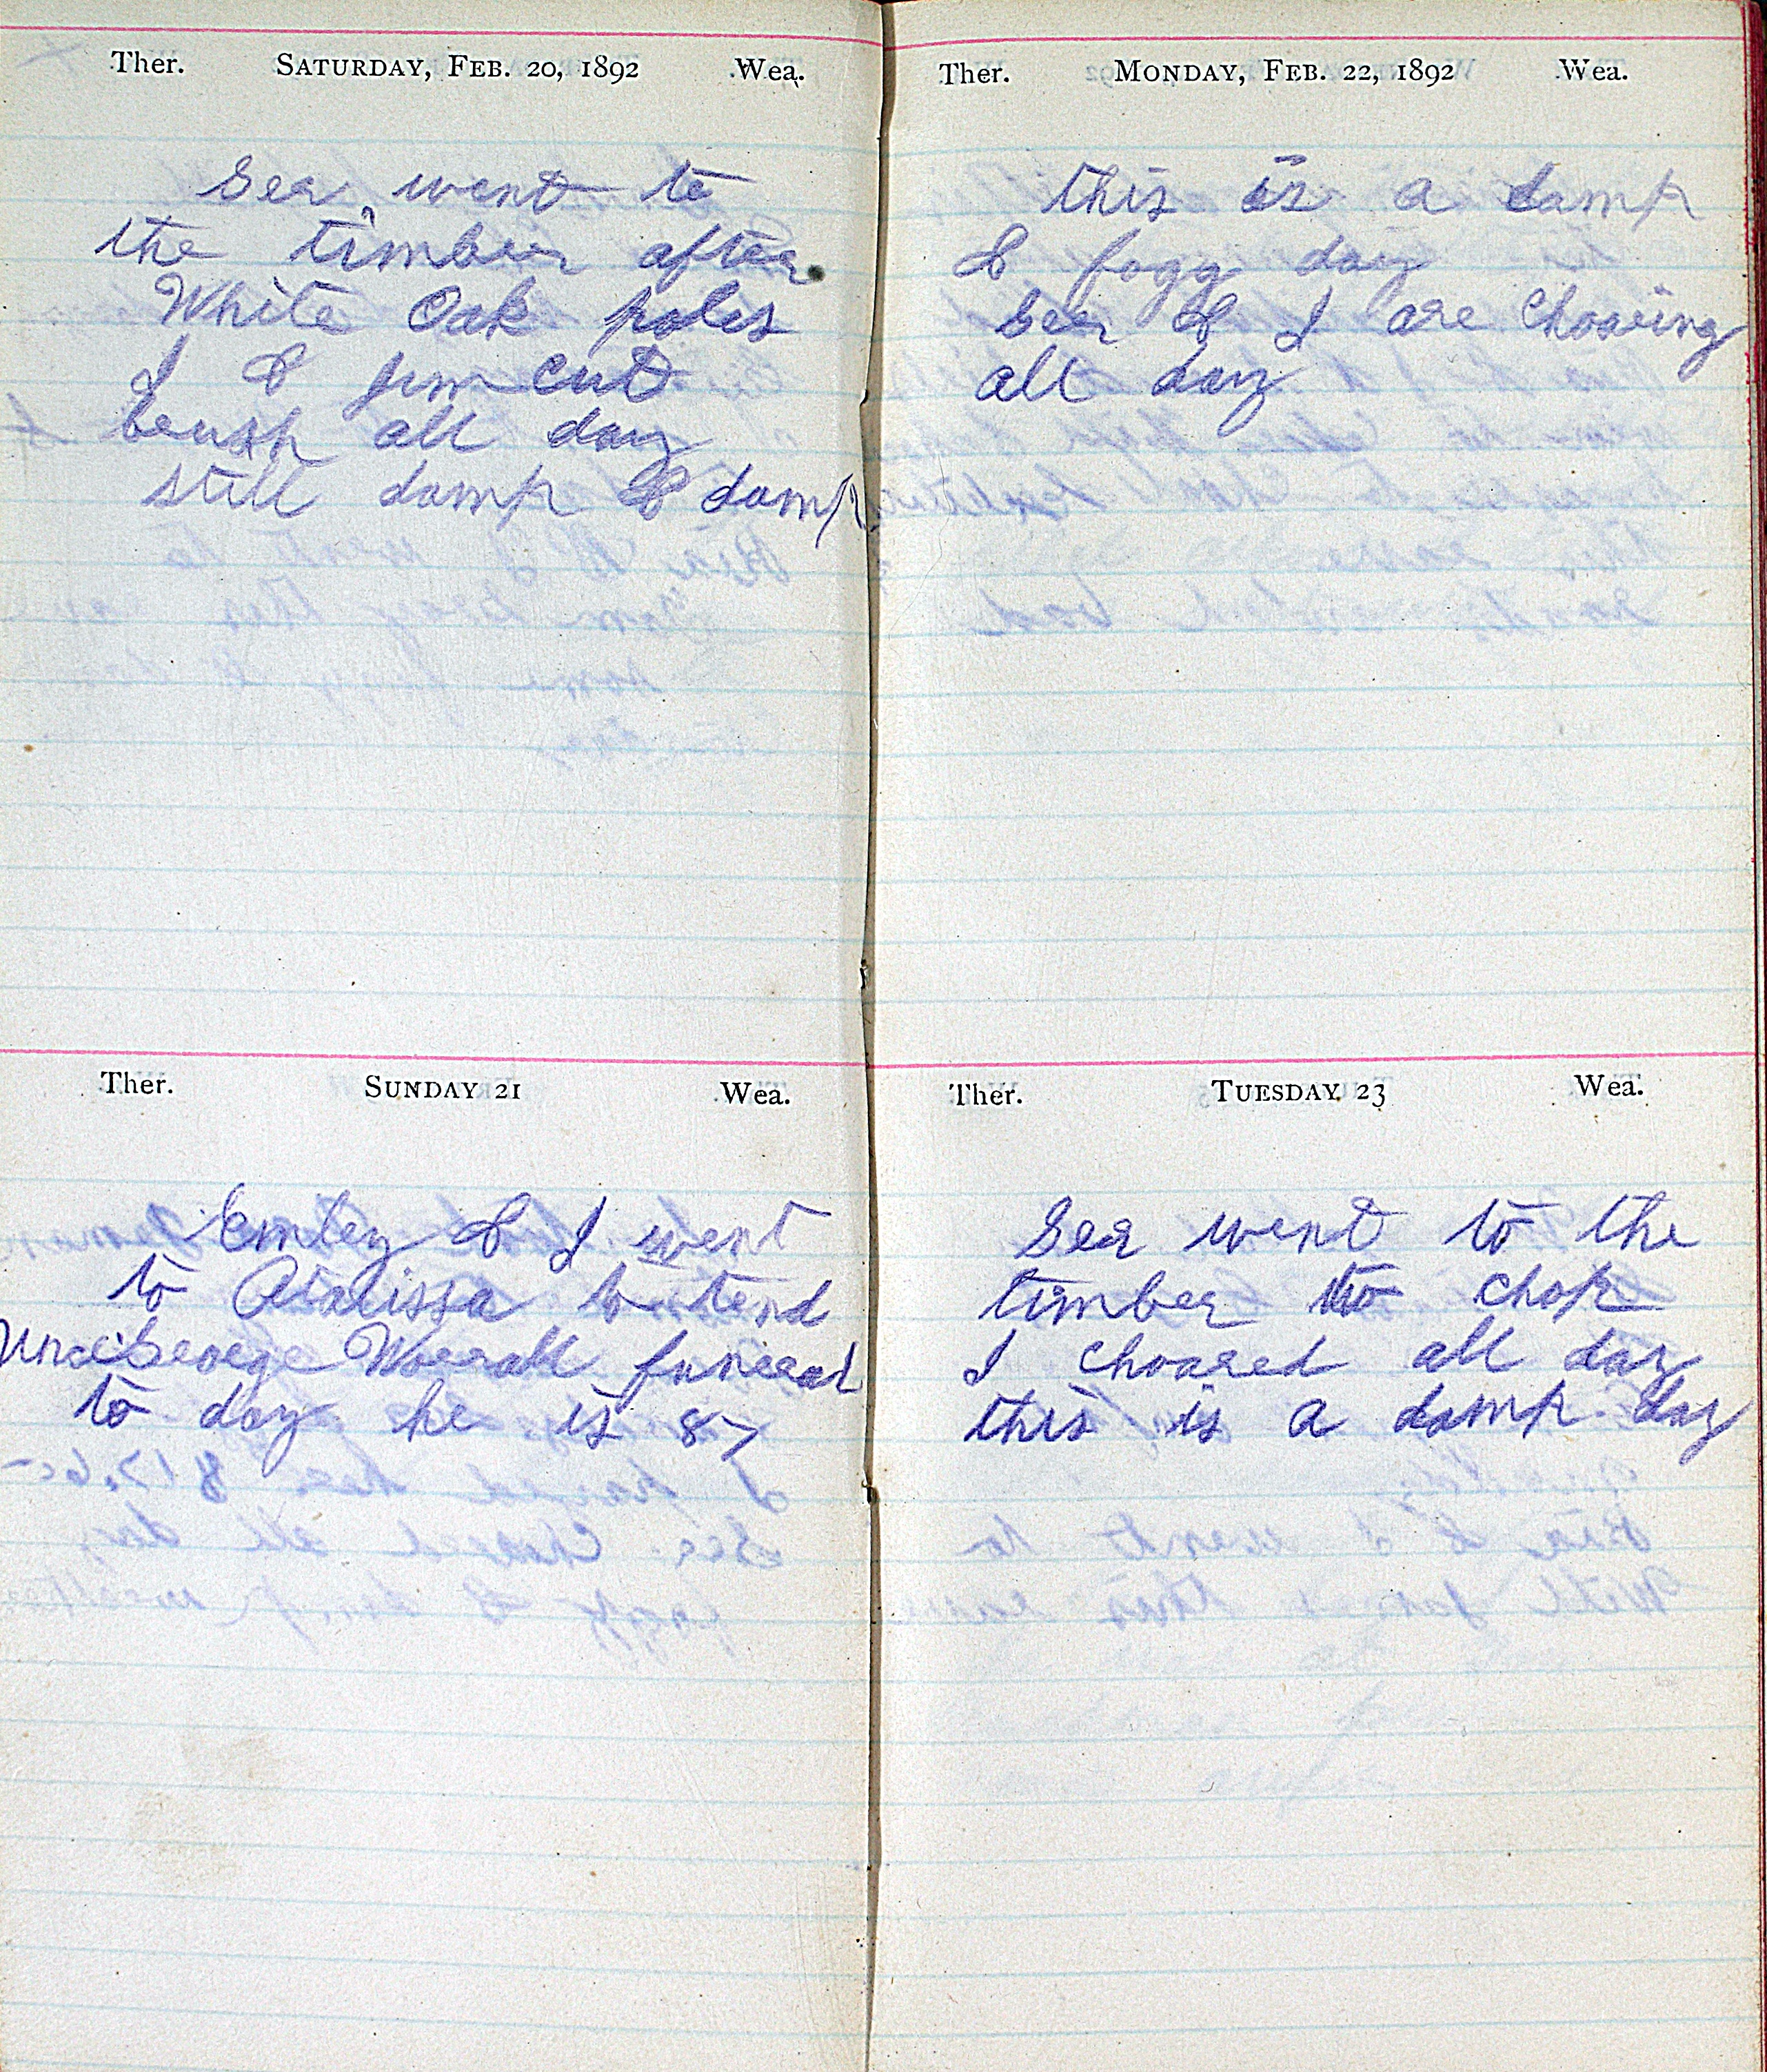 Ther. SATURDAY, FEB. 20, 1892 Wea.
Gea went to
the timber after
White Oak poles
I & Jim cut
brush all day
still damp & damp
Ther. SUNDAY 21 Wea.
Emley & I went
to Atalissa to tend
Uncl George Worrall funeral
to day he is 87
Ther. MONDAY, FEB. 22, 1892 Wea.
this is a damp
& fogg day
Gea & I are Choaring
all day
Ther. TUESDAY 23 Wea.
Gea went to the
timber to chop
I choared all day
this is a damp day